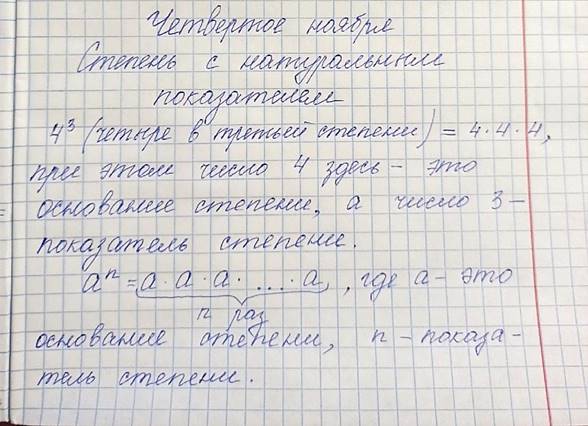 Четвертое ноября
Степень с натуральным
показателем
4³ (четыре в третьей степени) = 4·4·4,
при этом число 4 здесь – это
основание степени, а число 3 –
показатель степени.
aⁿ = a·a·a·....a, где a – это
n раз
основание степени, n – показа-
тель степени.